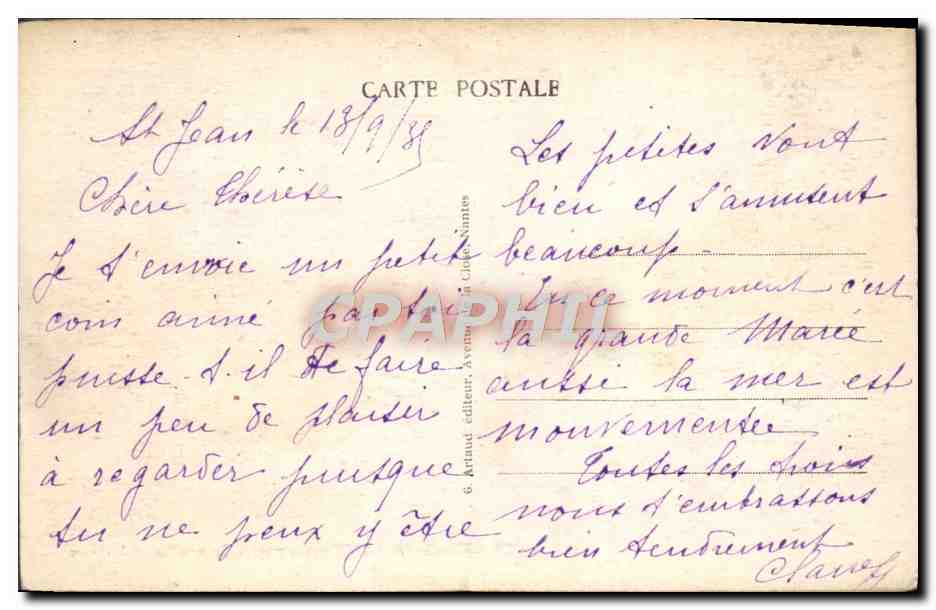 CARTE POSTALE
St Jean le 13/9/35
Chère Thérèse
Je t'envoie un petit
coin aimé par toi
puisse-t-il te faire
un peu de plaisir
à regarder puisque
tu ne peux y être
6. Artaud éditeur, Avenue de la Close, Nantes
Les petites vont
bien et s'amusent
beaucoup -
En ce moment c'est
la grande Marée
aussi la mer est
mouvementée
Toutes les trois
nous t'embrassons
bien tendrement
CPAPHIL